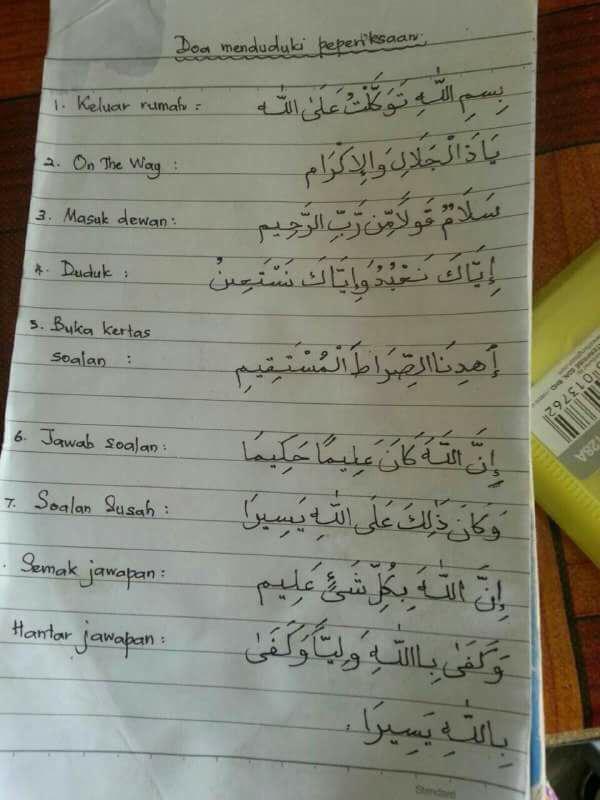 Doa menduduki peperiksaan.
1. Keluar rumah : بِسمِ اللّٰهِ تَوَكَّلْتُ عَلَىٰ اللّٰه
2. On The Way : يَا ذَ الْجَلَالِ وَالِإكْرَام
3. Masuk dewan: سَلَامٌ قَولًا مِّن رَبِّ الرَّحِيم
4. Duduk : إِيَّاكَ نَعْبُدُ وَإِيَّاكَ نَسْتَعِينُ
5. Buka kertas
soalan : إهدِنَا الصِّرَاطَ الْمُسْتَقِيمِ
6. Jawab soalan: إِنَّ اللّٰهَ كَانَ عَلِيمًا حَكِيمَا
7. Soalan Susah : وَكَانَ ذَٰلِكَ عَلَى اللّٰهِ يَسِيرَا
. Semak jawapan: إِنَّ اللّٰهَ بِكُلِّ شَئٍ عَلِيم
Hantar jawapan: وَكَفَىٰ بِاللّٰهِ وَلِيًّا وَكَفَىٰ
بِاللّٰهِ يَسِيرَا .
Standard
013762